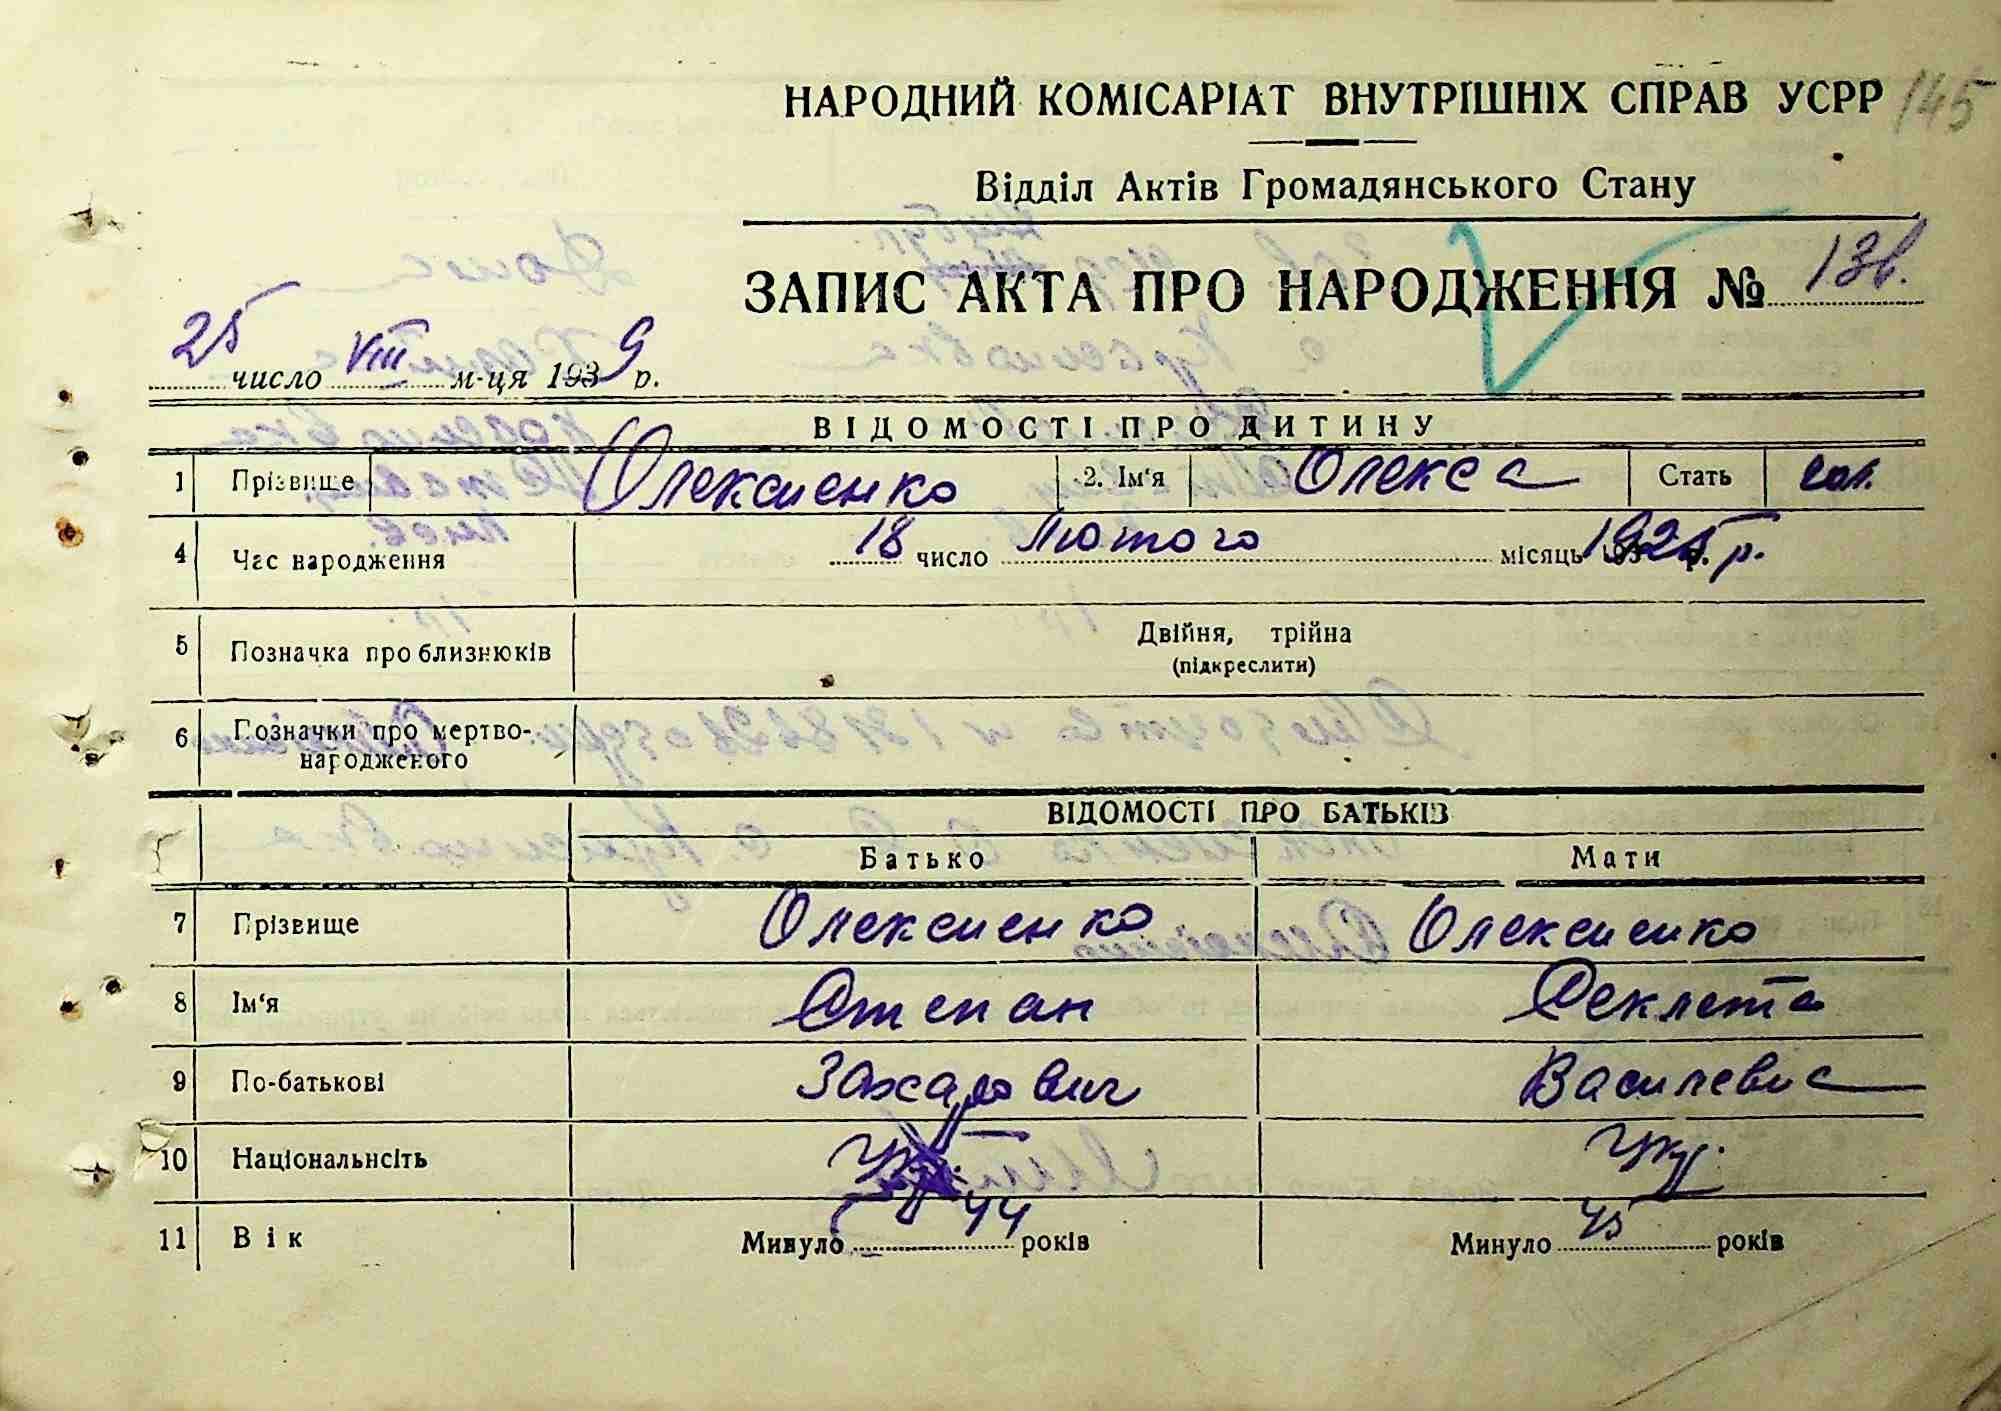 НАРОДНИЙ КОМІСАРІАТ ВНУТРІШНІХ СПРАВ УСРР 145
Відділ Актів Громадянського Стану
ЗАПИС АКТА ПРО НАРОДЖЕННЯ №
25 число VIII м-ця 1939 р.
ВІДОМОСТІ ПРО ДИТИНУ
1 Прізвище Олексиенко 2. Ім'я Олекса Стать чол.
4 Час народження 18 число Лютого місяць 1925 р.
5 Позначка про близнюків Двійня, трійна
(підкреслити)
6 Позначки про мертво-
народженого
ВІДОМОСТІ ПРО БАТЬКІВ
Батько Мати
7 Прізвище Олексиенко Олексиенко
8 Ім'я Степан Секлета
9 По-батькові Захарович Василевна
10 Національнсіть Укр. Укр.
11 Вік Минуло 44 років Минуло 45 років